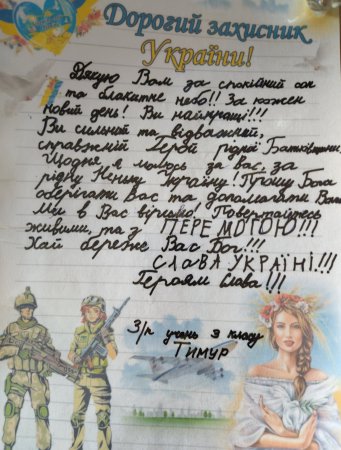 Дорогий захисник
України!
Дякую Вам за спокійний сон
та блакитне небо!! За кожен
новий день! Ви найкращі!!!
Ви сильний та відважний,
справжній Герой рідної Батьківщини.
Щодня, я молюсь за Вас, за
рідну Неньку Україну! Прошу Бога
оберігати Вас та допомагати Вам
Ми в Вас віримо! Повертайтесь
живими, та з ПЕРЕМОГОЮ!!!
Хай береже Вас Бог!!!
СЛАВА УКРАЇНІ!!!
Героям слава!!!
З/п учень 3 класу
Тимур